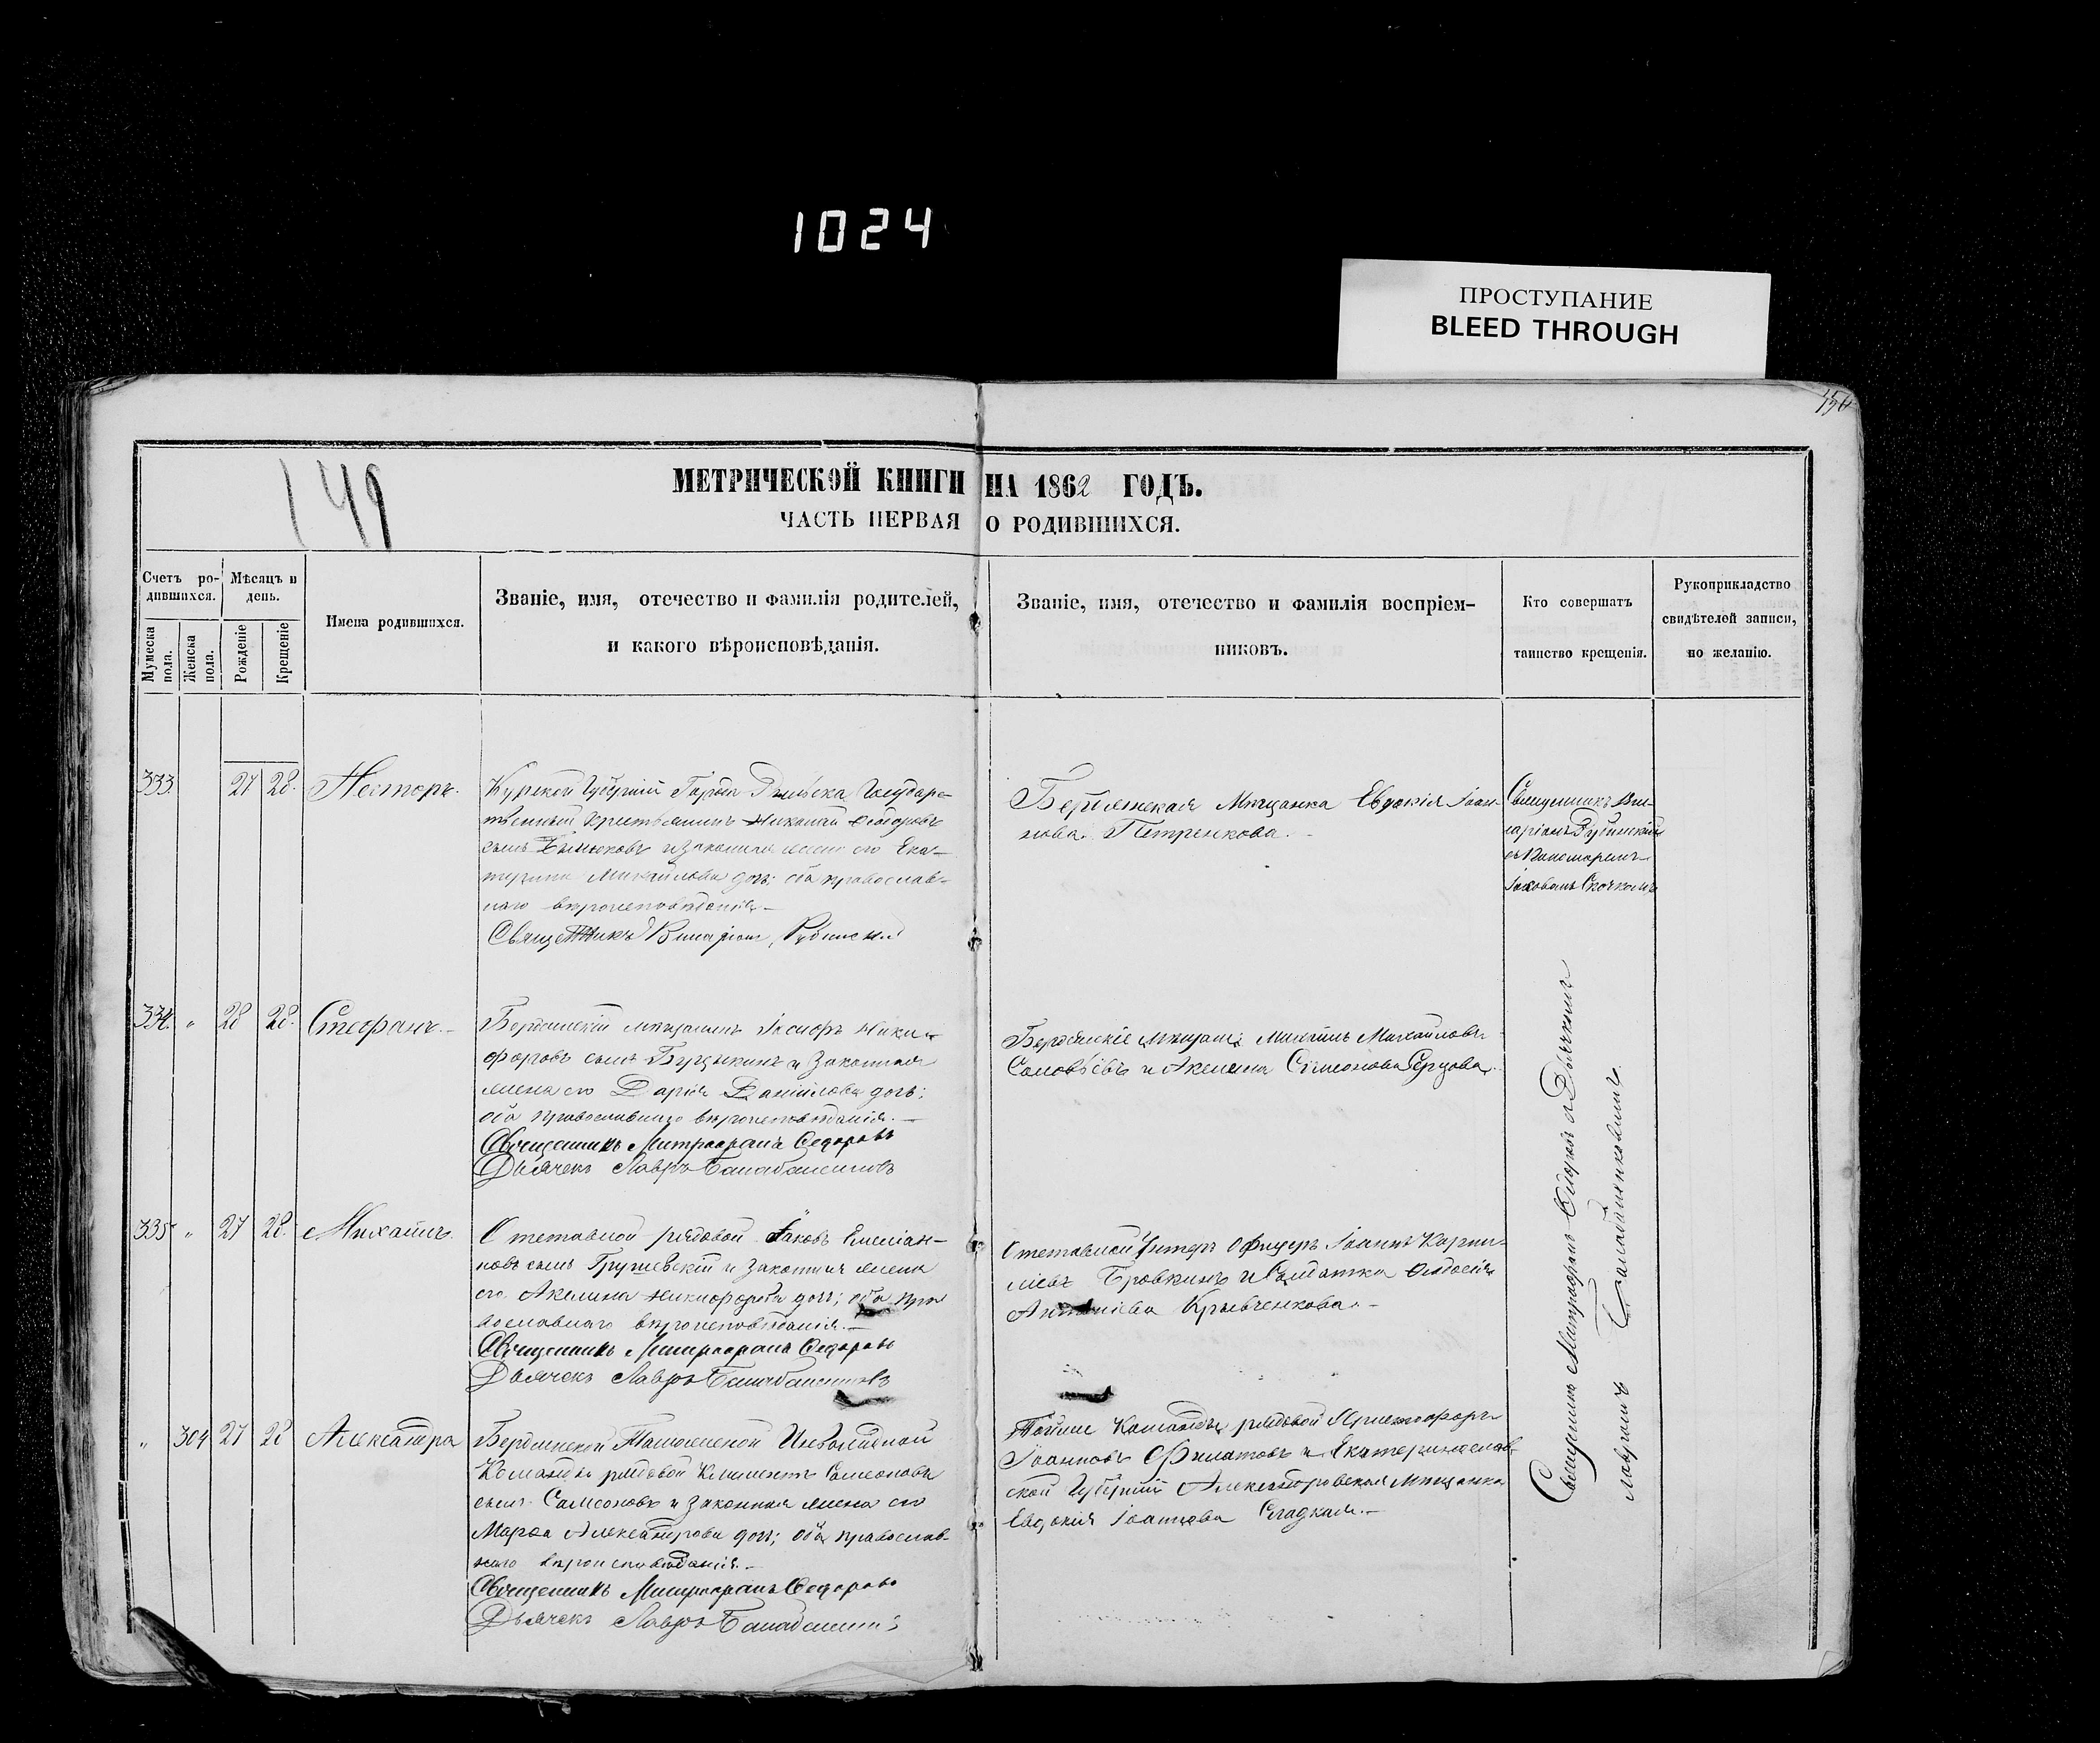 1024
ПРОСТУПАНИЕ
BLEED THROUGH
150
149
МЕТРИЧЕСКОЙ КНИГИ НА 1862 ГОДЪ.
ЧАСТЬ ПЕРВАЯ О РОДИВШИХСЯ.
Счетъ ро-
дившихся.
Мужеска пола.
Женска пола.
Мѣсяцъ и
день.
Рожденіе
Крещеніе
Имена родившихся.
Званіе, имя, отечество и фамилія родителей,
и какого вѣроисповѣданія.
Званіе, имя, отечество и фамилія воспріем-
никовъ.
Кто совершатъ
таинство крещенія.
Рукоприкладство
свидѣтелей записи,
по желанію.
333. 27 28. Несторъ.
Курской Губерніи Города Рыльска Государс-
твенный крестьянинъ Николай Ѳеодоровъ
сынъ и законная жена его Ека-
терина Михайлова дочь; оба православ-
наго вѣроисповѣданія.
Священникъ
Бердянская Мѣщанка Евдокія Іоан-
нова Петренкова.
Священникъ
съ Пономаремъ
334. " 28 28. Стефанъ.
Бердянскій мѣщанинъ Іосифъ Ники-
форовъ сынъ и законная
жена его Дарія Даніилова дочь;
оба православнаго вѣроисповѣданія.
Священникъ Митрофанъ Федоровъ
Дьячекъ Лавръ
Бердянскіе мѣщане Михаилъ Михайловъ
Соловьевъ и Акелина Симеонова
335 " 27 28. Михаилъ.
Отставной рядовой Іаковъ Емеліан-
новъ сынъ Грушевскій и законная жена
его Акилина Никифорова дочь; оба пра
вославнаго вѣроисповѣданія.
Священникъ Митрофанъ Федоровъ
Дьячекъ Лавръ
Отставной Унтеръ Офицеръ Іоаннъ Карпи-
ліевъ Бровкинъ и Солдатка Ѳеодосія
Антоніева Крывченкова.
" 304 27 28 Александра
Бердянской Таможенной Инвалидной
Команды рядовой Климентъ Самсоновъ
сынъ Самсоновъ и законная жена его
Марѳа Александрова дочь; оба православ-
наго вѣроисповѣданія.
Священникъ Митрофанъ Федоровъ
Дьячекъ Лавръ
Тойже Команды рядовой Христофоръ
Іоанновъ Филатовъ и Екатеринослав-
ской Губерніи Александровская Мѣщанка
Евдокія Іоаннова Сладкая.
Священникъ Митрофанъ Ѳедоровъ и Дьячкомъ
Лавромъ